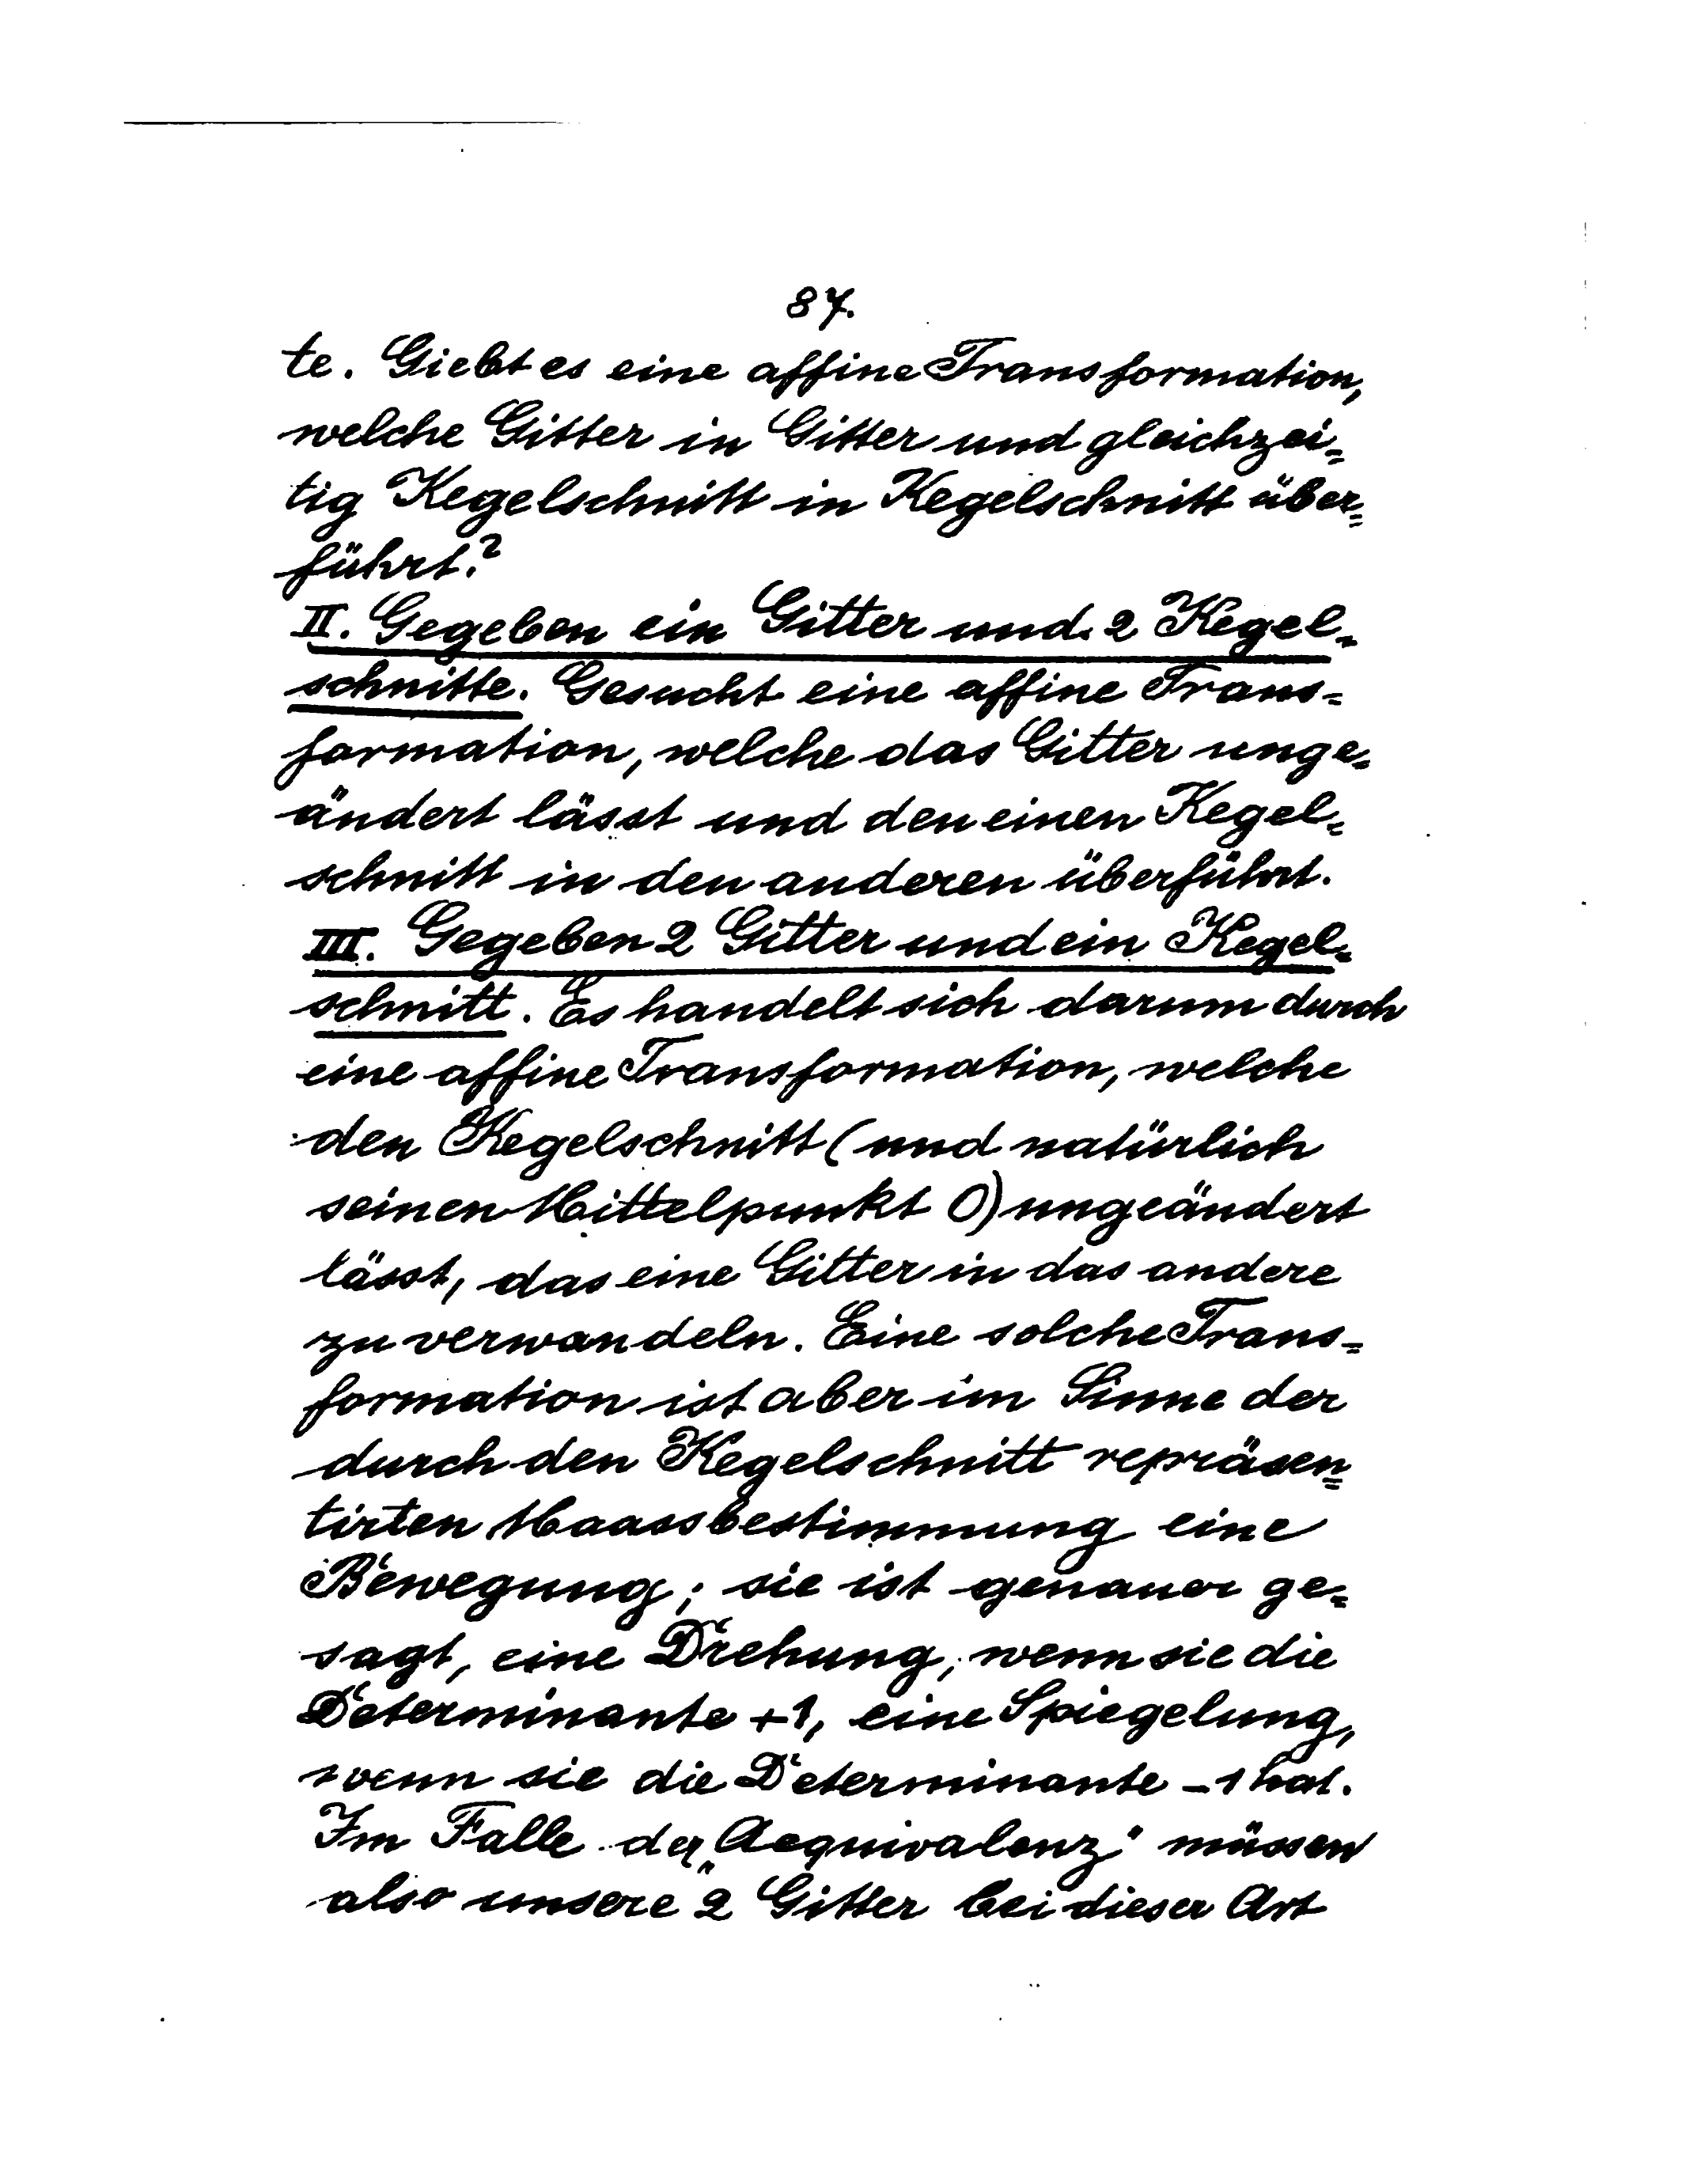 87.
te. Giebt es eine affine Transformation,
welche Gitter in Gitter und gleichzei=
tig Kegelschnitt in Kegelschnitt über=
führt?
II. Gegeben ein Gitter und 2 Kegel=
schnitte. Gesucht eine affine Trans=
formation, welche das Gitter unge=
ändert lässt und den einen Kegel=
schnitt in den anderen überführt.
III. Gegeben 2 Gitter und ein Kegel=
schnitt. Es handelt sich darum durch
eine affine Transformation, welche
den Kegelschnitt (und natürlich
seinen Mittelpunkt O) ungeändert
lässt, das eine Gitter in das andere
zu verwandeln. Eine solche Trans=
formation ist aber im Sinne der
durch den Kegelschnitt repräsen=
tirten Maassbestimmung eine
Bewegung; sie ist genauer ge=
sagt, eine Drehung, wenn sie die
Determinante +1, eine Spiegelung,
wenn sie die Determinante -1 hat.
Im Falle der „Aequivalenz“ müssen
also unsere 2 Gitter bei dieser Art